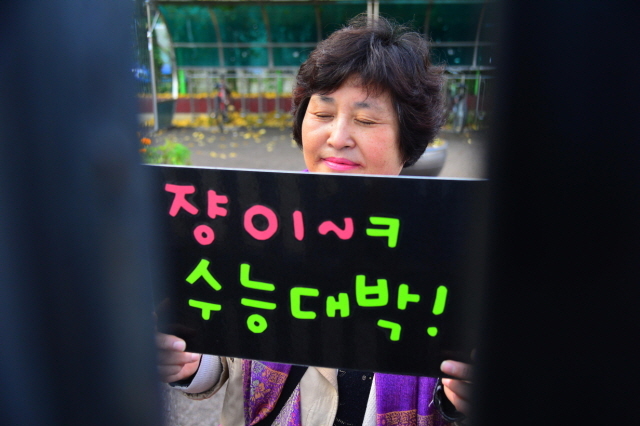 쟝이~ㅋ
수능대박!